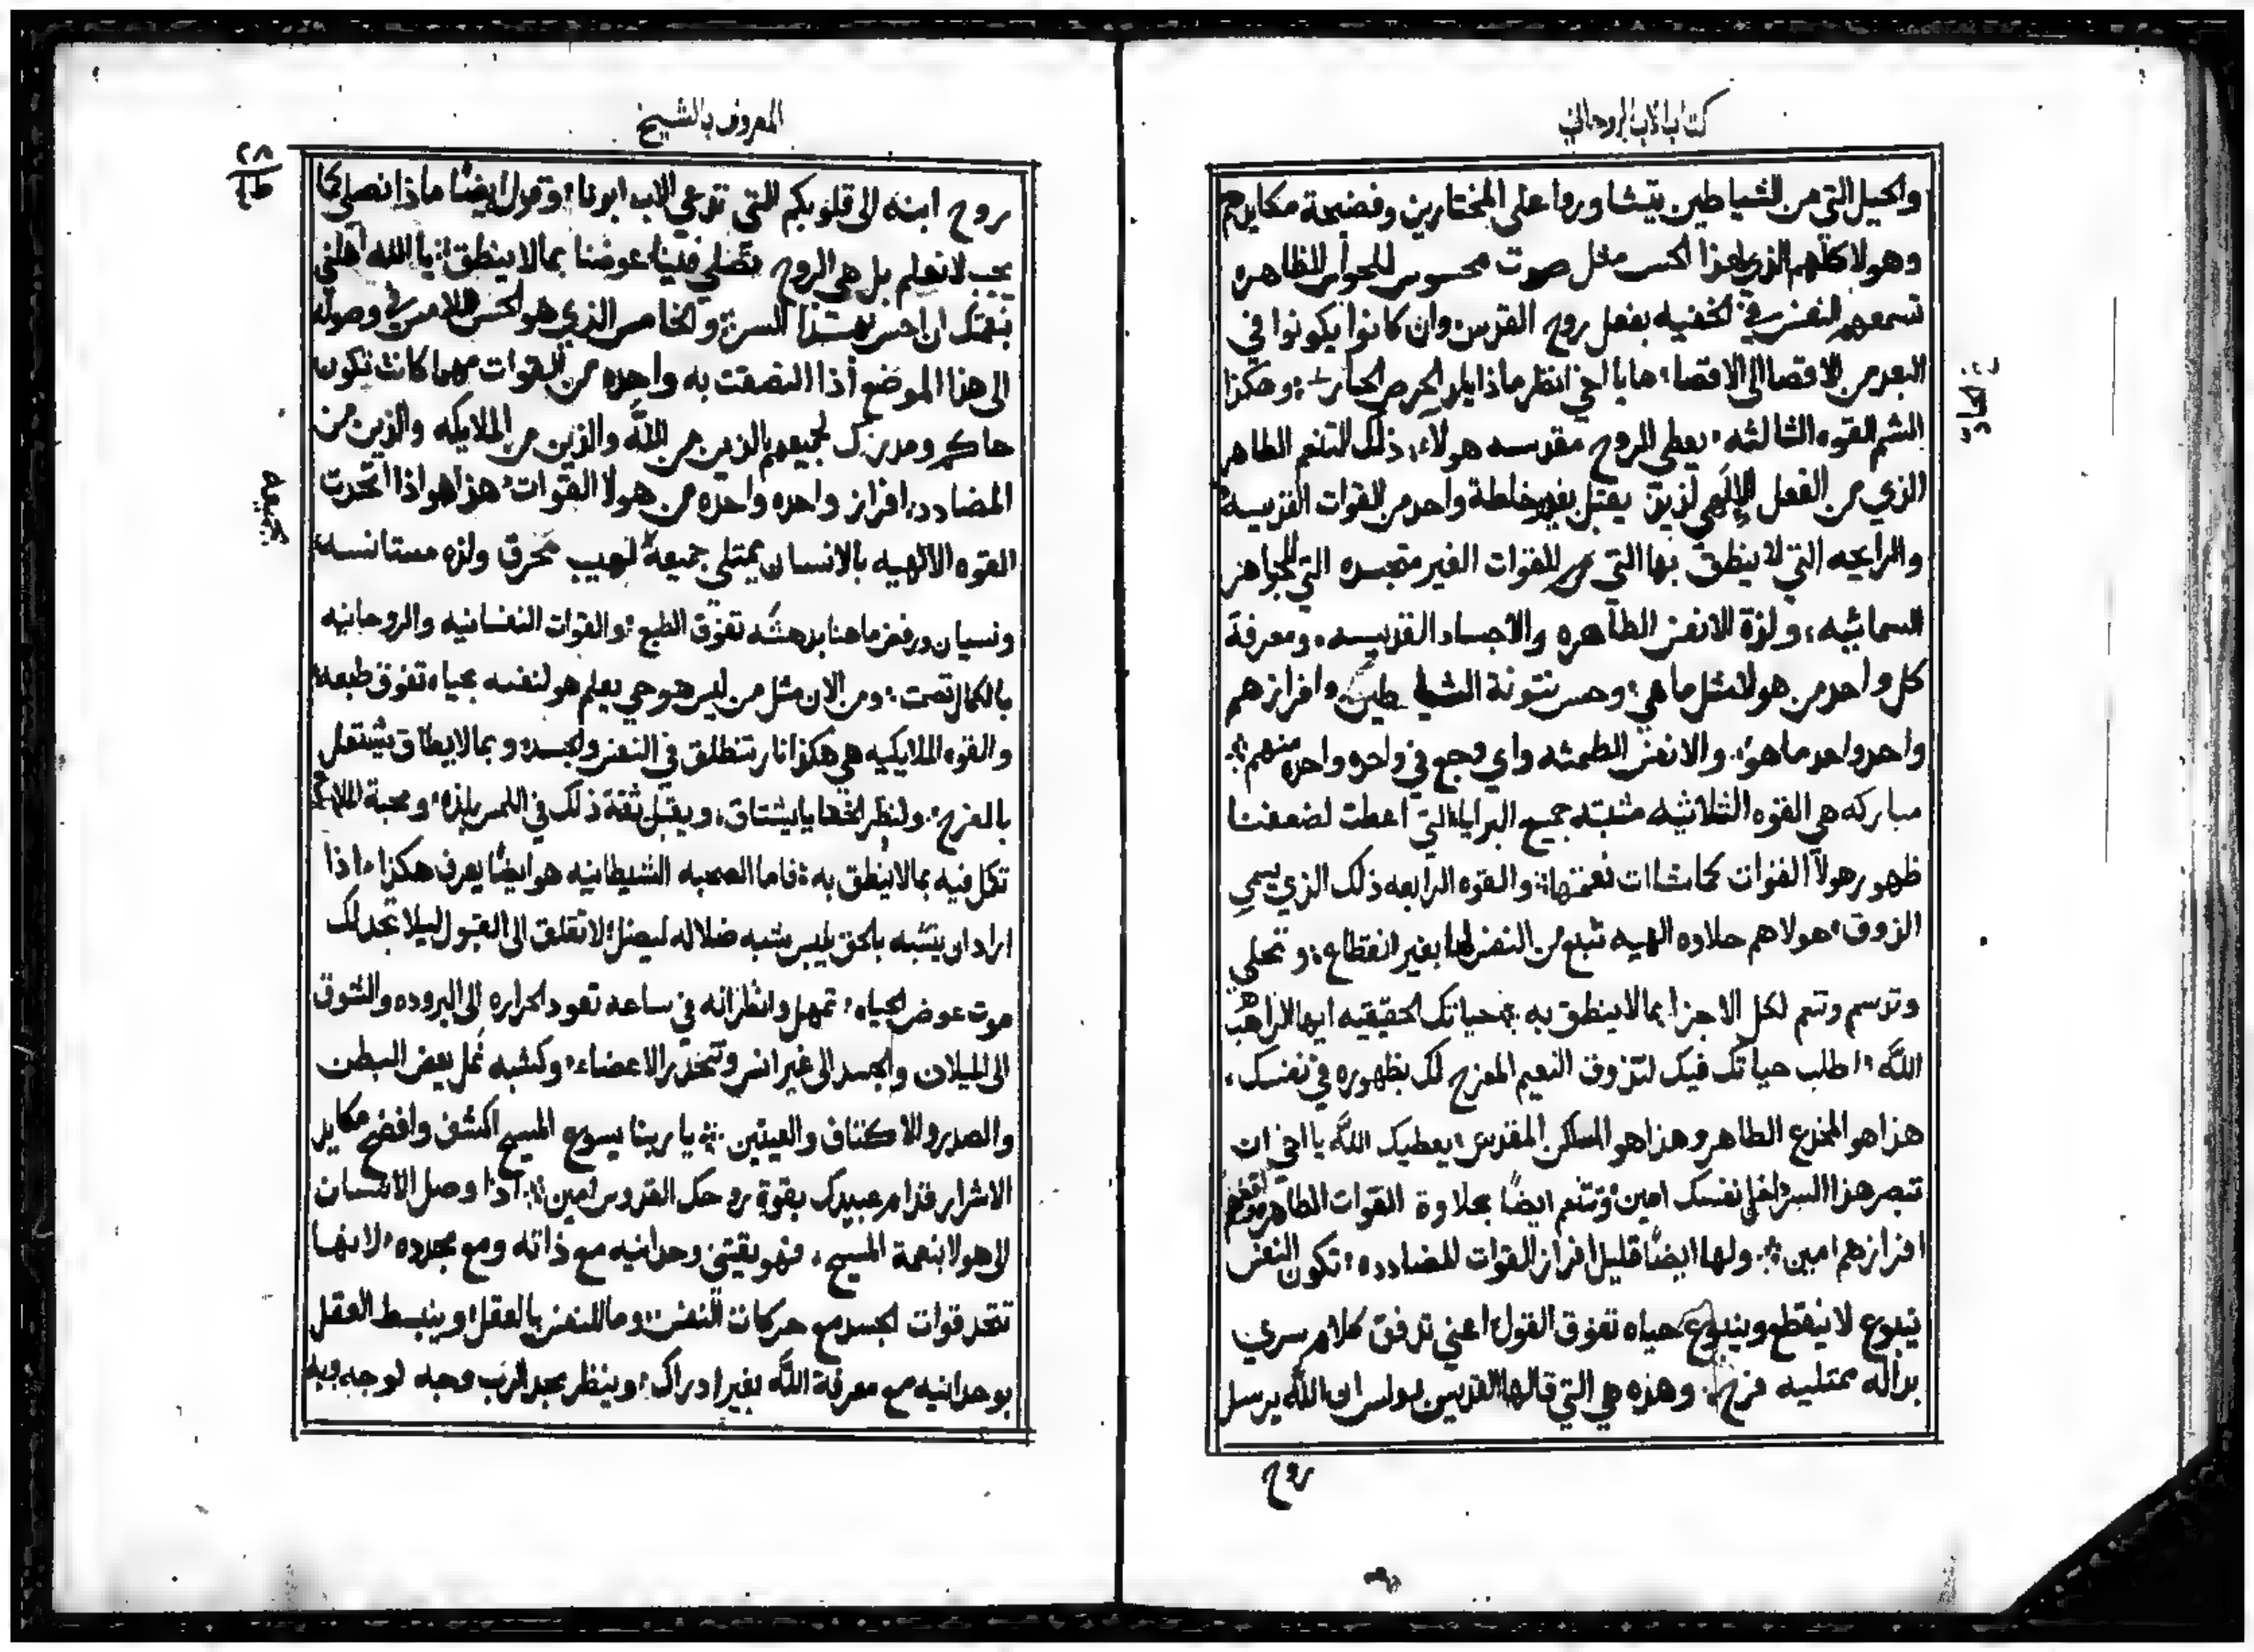 كتاب الاب الروحاني
والحيل التي من الشياطين يتشاوروا على المختارين وفضيحة مكايدهم
وهولا كلهم الذي لهذا الحس مثل صوت محسوس للحواس الظاهره
تسمعهم النفس في الخفيه بفعل روح القدس وان كانوا يكونوا في
البعد من الاقصا الى الاقصا ها يا اخي انظر ماذا يلد الحرص الحار وهكذا
الشم القوه الثالثه يعطي الروح مقدسه هولاء ذلك التنعم الطاهر
الذي من الفعل الالهي لذيذ يقبل بغير خلطة واحد من القوات القديسه
والرايحه التي لا ينطق بها التي من القوات الغير متجسده التي للجواهر
السمائيه ولذة الانفس الطاهره والاجساد القديسه ومعرفة
كل واحد من هولا مثل ما هي وحس نتونة الشياطين وافرازهم
واحد واحد ما هو والانفس الطمثه واي وجع في واحده واحده منهم
مباركه هي القوه الثلاثيه مثبته جميع البرايا التي اعطت لضعفنا
ظهور هولا القوات كما شاات نعمتها والقوه الرابعه ذلك الذي يسمي
الذوق هولا هم حلاوه الهيه تنبع من النفس لها بغير انقطاع وتحلي
وترسم وتتم لكل الاجزا بما لا ينطق به بحياتك الحقيقيه ايها الراهب
الله اطلب حياتك فيك لتذوق النعيم المفرح لك بظهوره في نفسك
هذا هو المخدع الطاهر وهذا هو المسكن المقدس يعطيك الله يا اخي ان
تبصر هذا السر داخل نفسك امين وتتنعم ايضًا بحلاوة القوات الطاهره
افرازهم امين ولها ايضًا قليل افراز القوات المضادده تكون النفس
ينبوع لا ينقطع وينبوع حياه تفوق القول اعني تدفق كلام سري
بداله ممتليه فرح وهذه هي التي قالها القديس بولس ان الله يرسل
روح
المعروف بالشيخ
روح ابنه الى قلوبكم التي تدعي الاب ابونا وقول ايضًا ماذا نصلي كما
يجب لا نعلم بل هي الروح تصلي فينا عوضنا بما لا ينطق يا الله اهلني
بنعمتك ان احس بهذا السر والخامس الذي هو الحس اللامس في وصوله
الى هذا الموضع اذا التصقت به واحده من القوات مهما كانت تكون
حاكم ومدرك لجميعهم الذين من الله والذين من الملايكه والذين من
المضادد افراز واحده واحده من هولا القوات هذا هو اذا اتحدت
القوه الالهيه بالانسان يمتلي جميعه لهيب محرق ولذه مستانسه
جميعه
ونسيان ورفض ما هنا بدهشه تفوق الطبع والقوات النفسانيه والروحانيه
بالكمال تمت ومن الان مثل من ليس هو حي يعلم هو لنفسه بحياه تفوق طبعه
والقوه الملايكيه هي هكذا نار تنطلق في النفس والجسد وبما لا يطاق يشتعل
بالفرح ولنظر الخفايا يشتاق ويقبل ثقة ذلك في اللمس بلذه ومحبة الملايكه
تكل فيه بما لا ينطق به فاما الصحبه الشيطانيه هو ايضًا يعرف هكذا اذا
اراد ان يتشبه بالحق يلبس شبه ضلاله ليضل لا تقلق الى القبول ليلا تجد لك
موت عوض الحياه تمهل وانظر انه في ساعه تعود الحراره الى البروده والشوق
الى الميلان والجسد الى غير انس وتتخدر الاعضاء وكشبه نمل بعض البطن
والصدر والاكتاف والعينين يا ربنا يسوع المسيح اكشف وافضح مكايد
الاشرار قدام عبيدك بقوة روحك القدوس امين اذا وصل الانسان
الى هولا بنعمة المسيح فهو يقتني وحدانيه مع ذاته ومع مجدده لانها
تتحد قوات الجسد مع حركات النفس وما للنفس بالعقل وينبسط العقل
بوحدانيه مع معرفة الله بغير ادراك وينظر مجد الرب وحبه لوجه وبه